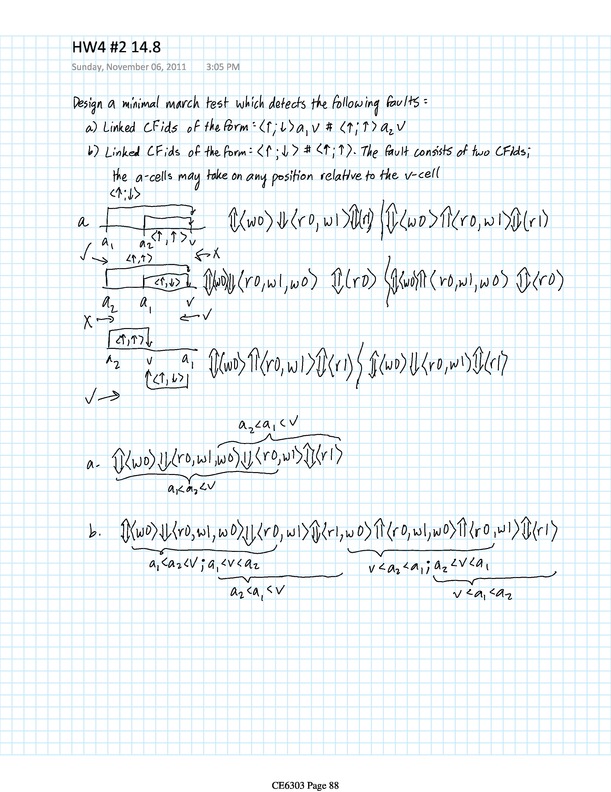 HW4 #2 14.8
Sunday, November 06, 2011 3:05 PM
Design a minimal march test which detects the following faults:
a) Linked CFids of the form: <↑;↓> a, v # <↑;↑> a₂ v
b) Linked CFids of the form: <↑;↓> # <↑;↑>. The fault consists of two CFids;
the a-cells may take on any position relative to the v-cell
<↑;↓>
a <↑;↑> ⇕(w0)⇓(r0,w1)⇕(r1) ⇕(w0)⇑(r0,w1)⇕(r1)
a₁ a₂ v
✓→ ←x
<↑;↑>
<↑;↓> ⇕(w0)⇓(r0,w1,w0) ⇕(r0) ⇕(w0)⇑(r0,w1,w0) ⇕(r0)
a₂ a₁ v
x→ ←✓
<↑;↑>
a₂ v a₁ ⇕(w0)⇑(r0,w1)⇕(r1) ⇕(w0)⇓(r0,w1)⇕(r1)
<↑;↓>
✓→
a₂<a₁<v
a. ⇕(w0)⇓(r0,w1,w0)⇓(r0,w1)⇕(r1)
a₁<a₂<v
b. ⇕(w0)⇓(r0,w1,w0)⇓(r0,w1)⇕(r1,w0)⇑(r0,w1,w0)⇑(r0,w1)⇕(r1)
a₁<a₂<v; a₁<v<a₂ v<a₂<a₁; a₂<v<a₁
a₂<a₁<v v<a₁<a₂
CE6303 Page 88